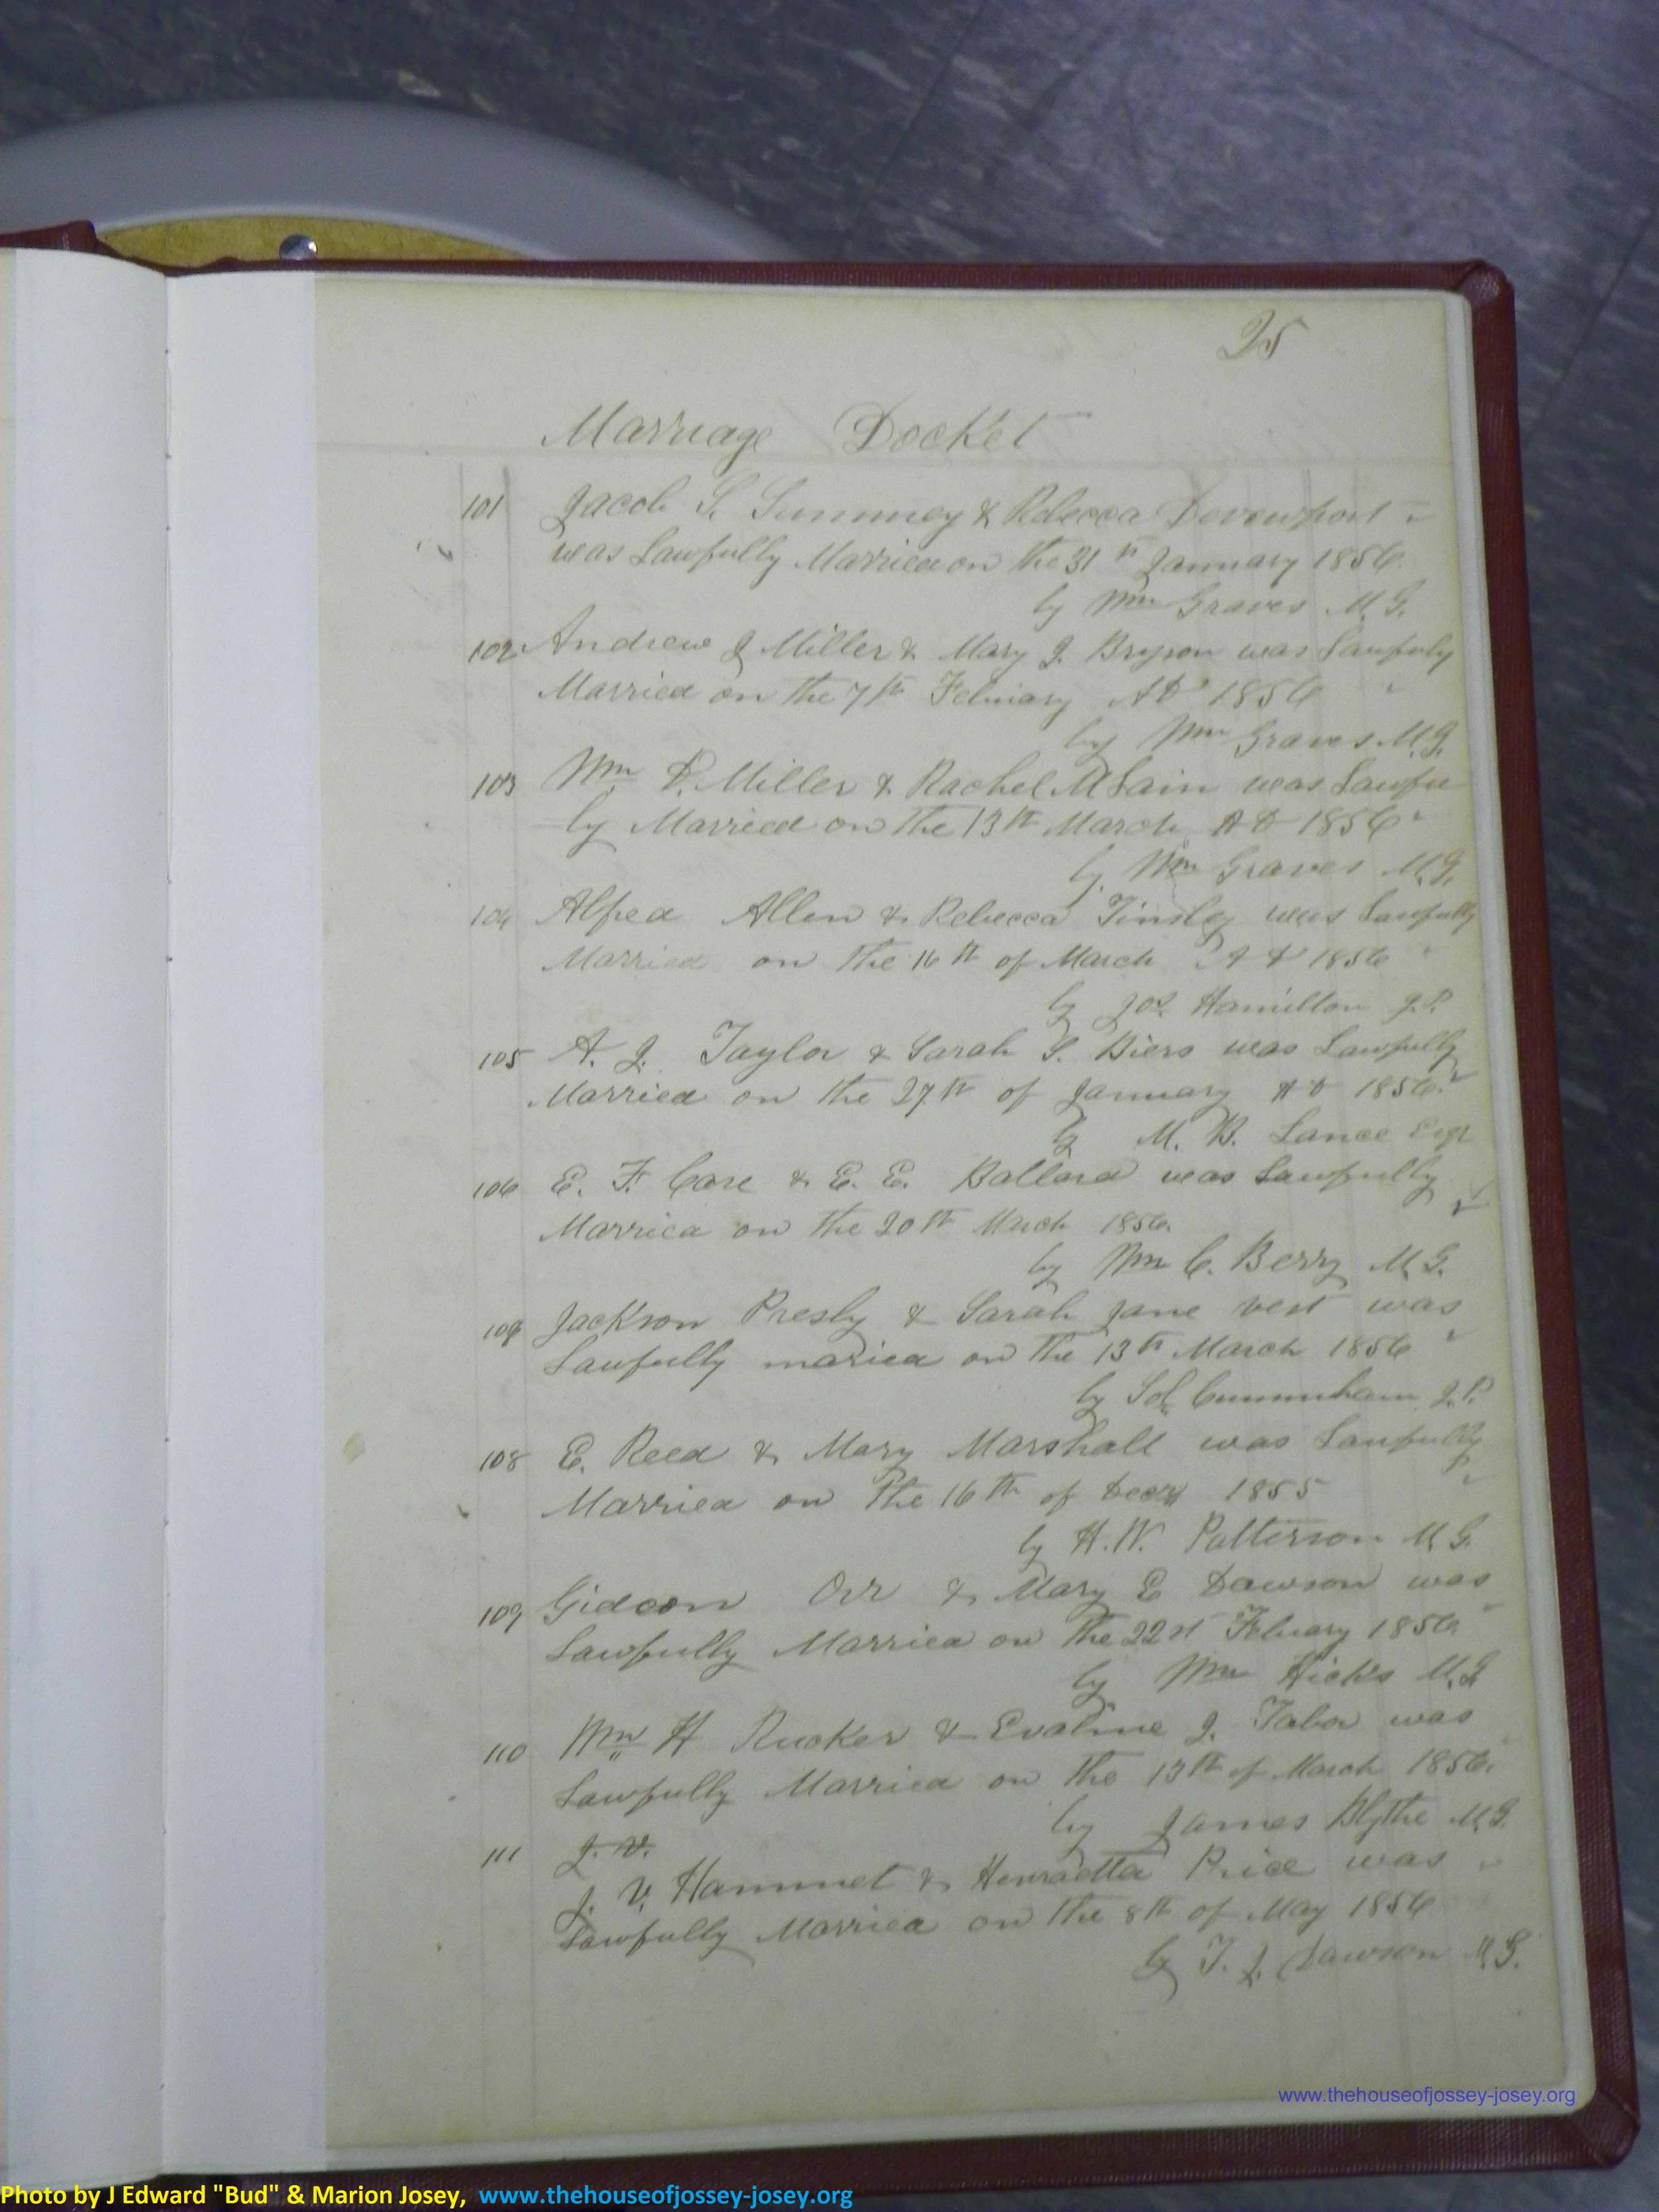 25
Marriage Docket
101 Jacob S. Summey & Rebecca Devenport
was Lawfully Married on the 31st January 1856.
by Wm Graves M.G.
102 Andrew J Miller & Mary J. Bryson was Lawfuly
Married on the 7th Febuary AD 1856
by Wm Graves M.G.
103 Wm P. Miller & Rachel McLain was Lawfu
ly Married on the 13th March AD 1856
by Wm Graves M.G.
104 Alfred Allen & Rebecca Tinsley was Lawfully
Married on the 16th of March AD 1856
by Jos. Hamilton J.P.
105 A. J. Taylor & Sarah S. Biers was Lawfully
Married on the 27th of January AD 1856.
by M. B. Lance Esqr
106 E. F. Case & E. E. Ballard was Lawfully
Married on the 20th March 1856.
by Wm C. Berry M.G.
107 Jackson Presly & Sarah Jane Vest was
Lawfully maried on the 13th March 1856
by Sol Cunninham J.P.
108 E. Reed & Mary Marshall was Lawfully
Married on the 16th of Decr 1855
by H.W. Patterson M.G.
109 Gideon Orr & Mary E Dawson was
Lawfully Married on the 22st Febuary 1856
by Wm Hicks M.G.
110 Wm H Rucker & Evaline J. Tabor was
Lawfully Married on the 13th of March 1856.
by James Blythe M.G.
111 J. V.
J. V. Hammet & Henraetta Price was
Lawfully Married on the 8th of May 1856
by T. J. Dawson M.G.
www.thehouseofjossey-josey.org
Photo by J Edward "Bud" & Marion Josey, www.thehouseofjossey-josey.org